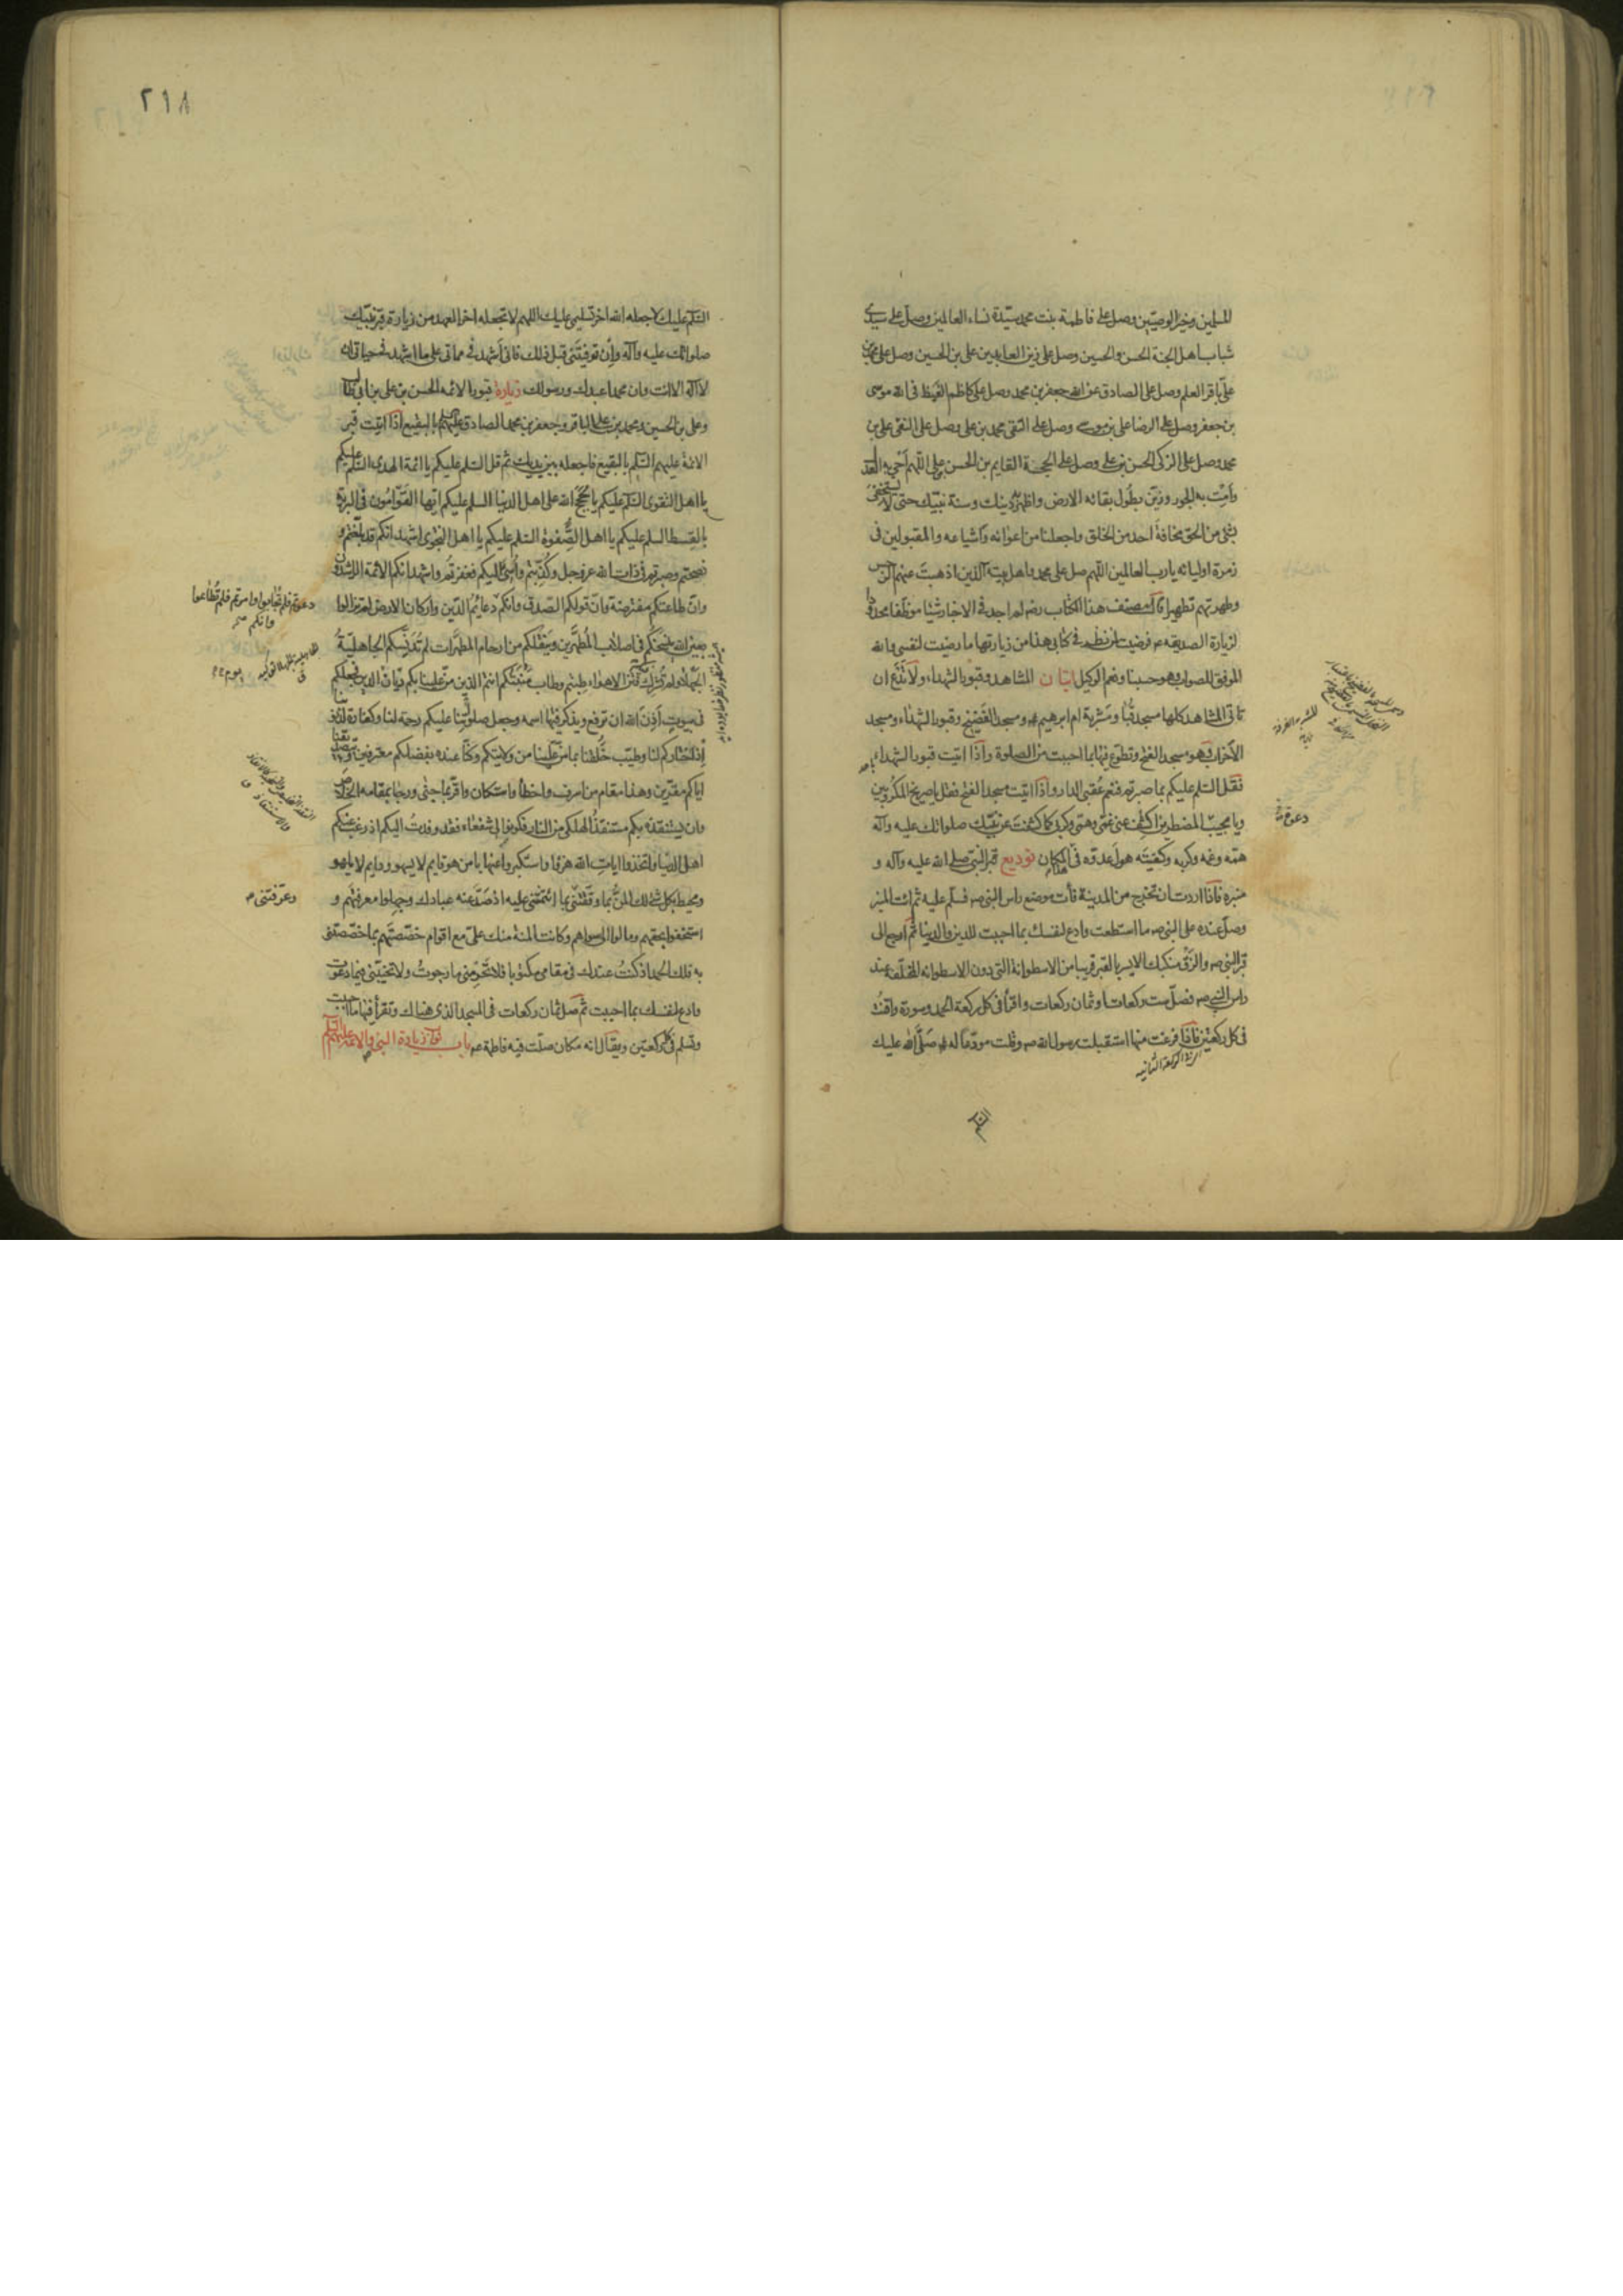 للمسلمين وخير الوصيين وصل على فاطمة بنت محمد سيدة نساء العالمين وصل على سيدى
شباب اهل الجنة الحسن والحسين وصل على زين العابدين على بن الحسين وصل على محمد بن
على باقر العلم وصل على الصادق عن الله جعفر بن محمد وصل على كاظم الغيظ فى الله موسى
بن جعفر وصل على الرضا على بن موسى وصل على التقى محمد بن على وصل على النقى على بن
محمد وصل على الزكى الحسن بن على وصل على الحجة القايم بن الحسن بن على اللهم احى به العدل
وامت به الجور وزين بطول بقائه الارض واظهر به دينك وسنة نبيك حتى لا يستخفى
بشئ من الحق مخافة احد من الخلق واجعلنا من اعوانه واشياعه والمقبولين فى
زمرة اوليائه يا رب العالمين اللهم صل على محمد واهل بيته الذين اذهبت عنهم الرجس
وطهرتهم تطهيرا قال مصنف هذا الكتاب رضه لم اجد فى الاخبار شيئا موظفا محدودا
لزيارة الصديقه فرضيت لمن نظر فى كتابى هذا من زيارتها ما رضيت لنفسى والله
الموفق للصواب وهو حسبنا ونعم الوكيل اتيان المشاهد وقبور الشهداء ولا تدع ان
تاتى المشاهد كلها مسجد قبا ومشربة ام ابرهيم ومسجد الفضيخ وقبور الشهداء ومسجد
الاحزاب وهو مسجد الفتح وتطوع فيها بما احببت من الصلوة واذا اتيت قبور الشهداء
فقل السلم عليكم بما صبرتم فنعم عقبى الدار واذا اتيت مسجد الفتح فقل يا صريخ المكروبين
ويا مجيب المضطرين اكشف عنى غمى وهمى وكربى كما كشفت عن نبيك صلواتك عليه وآله
همه وغمه وكربه وكفيته هول عدوه فى هذا المكان توديع قبر النبى صلى الله عليه وآله و
منبره فاذا اردت ان تخرج من المدينة فأت موضع راس النبى ص فسلم عليه ثم ائت المنبر
وصل عنده على النبى ص ما استطعت وادع لنفسك بما احببت للدين والدنيا ثم ارجع الى
قبر النبى ص والزق منكبك الايسر بالقبر قريبا من الاسطوانة التى دون الاسطوانه المخلقه عند
راس النبى ص فصل ست ركعات او ثمان ركعات واقرأ فى كل ركعة الحمد وسورة واقنت
فى كل ركعتين فاذا فرغت منها استقبلت رسول الله ص وقلت مودعا له ص صلى الله عليك
السلم
السلم عليك لا جعله الله اخر تسليمى عليك اللهم لا تجعله اخر العهد من زيارة قبر نبيك
صلواتك عليه وآله وان توفيتنى قبل ذلك فانى اشهد فى مماتى على ما اشهد فى حياتى ان
لا اله الا انت وان محمدا عبدك ورسولك زيارة قبور الائمه الحسن بن على بن ابى طالب
وعلى بن الحسين ومحمد بن على الباقر وجعفر بن محمد الصادق عليهم السلم بالبقيع اذا اتيت قبر
الائمة عليهم السلم بالبقيع فاجعله بين يديك ثم قل السلم عليكم يا ائمة الهدى السلم عليكم
يا اهل التقوى السلم عليكم يا حجج الله على اهل الدنيا السلم عليكم ايها القوامون فى البرية
بالقسط السلم عليكم يا اهل الصفوة السلم عليكم يا اهل النجوى اشهد انكم قد بلغتم و
نصحتم وصبرتم فى ذات الله عز وجل وكذبتم واسئ اليكم فغفرتم واشهد انكم الائمة الراشدون
وان طاعتكم مفترضة وان قولكم الصدق وانكم دعائم الدين واركان الارض لم تزالوا
دعوتم فلم تجابوا وامرتم فلم تطاعوا وانكم
بعين الله ينسخكم فى اصلاب المطهرين وينقلكم من ارحام المطهرات لم تدنسكم الجاهلية
الجهلاء ولم تشرك فيكم فتن الاهواء طبتم وطاب منبتكم انتم الذين من علينا بكم ديان الدين فجعلكم
فى بيوت اذن الله ان ترفع ويذكر فيها اسمه وجعل صلوتنا عليكم رحمة لنا وكفارة لذنوبنا
اذ اختاركم لنا وطيب خلقنا بما من علينا من ولايتكم وكنا عنده بفضلكم معترفين وبتصديقنا
اياكم مقرين وهذا مقام من اسرف واخطأ واستكان واقر بما جنى ورجا بمقامه الخلاص
وان يستنقذه بكم مستنقذ الهلكى من النار فكونوا لى شفعاء فقد وفدت اليكم اذ رغب عنكم
اهل الدنيا واتخذوا ايات الله هزوا واستكبروا عنها يا من هو قايم لا يسهو ودايم لا يلهو
ومحيط بكل شئ لك المن بما وفقتنى بما ائتمنتنى عليه اذ صد عنه عبادك وجهلوا معرفتهم و
وعرفتنى
استخفوا بحقهم ومالوا الى سواهم وكانت المنة منك على مع اقوام خصصتهم بما خصصتنى
به فلك الحمد اذ كنت عندك فى مقامى مكتوبا فلا تحرمنى ما رجوت ولا تخيبنى فيما دعوت
وادع لنفسك بما احببت ثم صل ثمان ركعات فى المسجد الذى هناك وتقرأ فيها ما احببت
وتسلم فى كل ركعتين ويقال انه مكان صلت فيه فاطمة ع باب ثواب زيارة النبى والائمة عليهم السلم
٢١٨